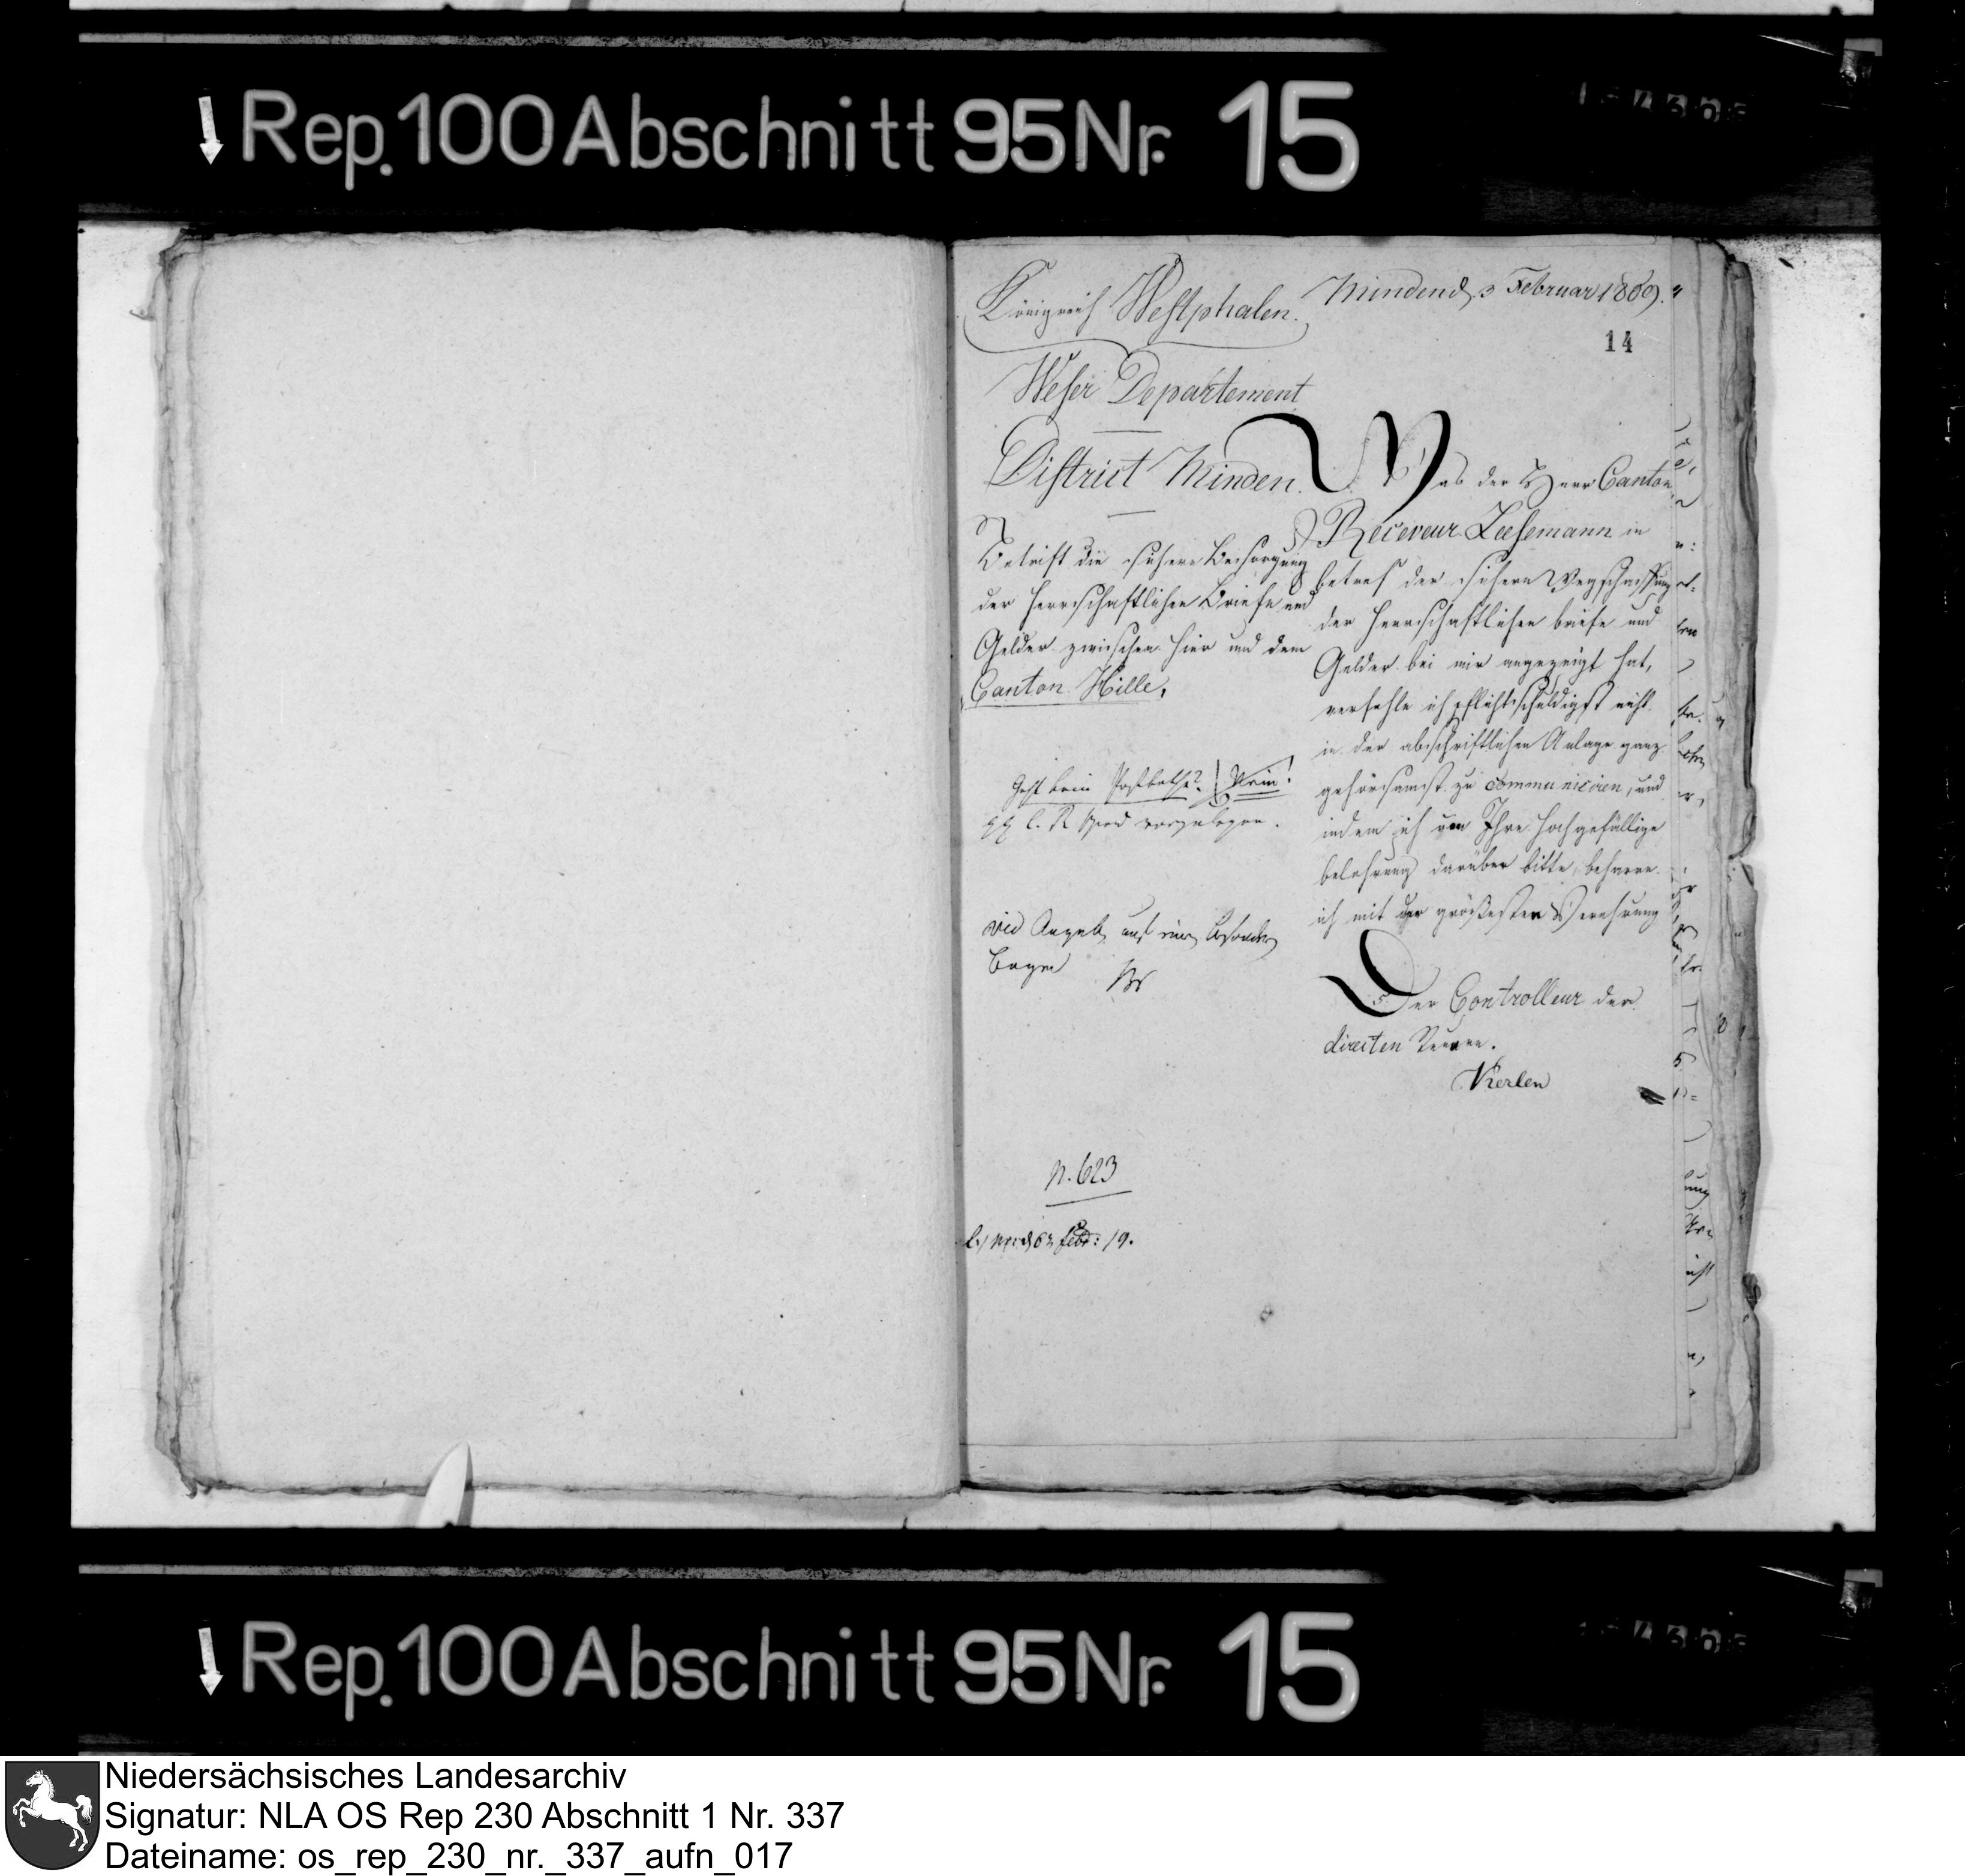 Rep. 100 Abschnitt 95 Nr. 15
Königreich Westphalen.
Weser Departement
District Minden.
Betrift die sichere Besorgung
der herrschaftlichen Briefe und
Gelder zwischen hier und dem
Canton Hille.
Geht kein Postbothe? Nein!
vorzulegen.
Bogen
N. 623
Minden d 3 Februar 1809.
14
Was der Herr Canton
Receveur Leesemann in
betref der sichern Wegschaffung
der herrschaftlichen briefe und
Gelder bei mir angezeigt hat,
verfehle ich pflichtschuldigst nicht
in der abschriftlichen Anlage ganz
gehorsamst zu communiciren, und
indem ich um Ihre hochgefällige
belehrung darüber bitte, beharre
ich mit der größesten Verehrung
Der Controlleur der
directen Steuern.
Kerlen
Rep. 100 Abschnitt 95 Nr. 15
Niedersächsisches Landesarchiv
Signatur: NLA OS Rep 230 Abschnitt 1 Nr. 337
Dateiname: os_rep_230_nr._337_aufn_017